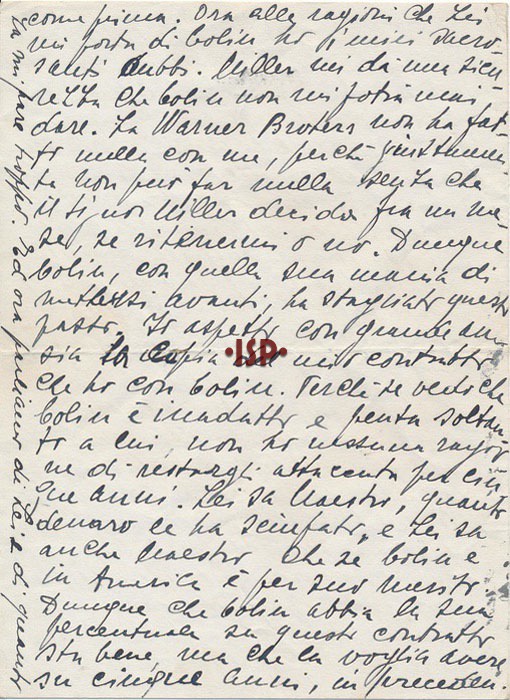 come prima. Ora alle ragioni che Lei
mi porta di Colin ho i miei sacro-
santi dubbi. Miller mi dà una sicu
rezza che Colin non mi potrà mai
dare. La Warner Broters non ha fat-
to nulla con me, perchè giustamen-
te non può far nulla senza che
il signor Miller decida fra un me-
se, se ritenermi o no. Dunque
Colin, con quella sua mania di
mettersi avanti, ha sbagliato questo
passo. Io aspetto con grande an
sia la copia del mio contratto
ISP
che ho con Colin. Perchè se vedo che
Colin è inadatto e pensa soltan
to a lui, non ho nessuna ragio
ne di restargli attaccata per cin
que anni. Lei sa Maestro, quanto
denaro ce ha sciupato, e Lei sa
anche Maestro che se Colin è
in America è per suo merito.
Dunque che Colin abbia la sua
percentuale su questo contratto
sta bene, ma che la voglia avere
su cinque anni, in preceden-
za mi pare troppo. Ed ora parliamo di Lei e di quanto